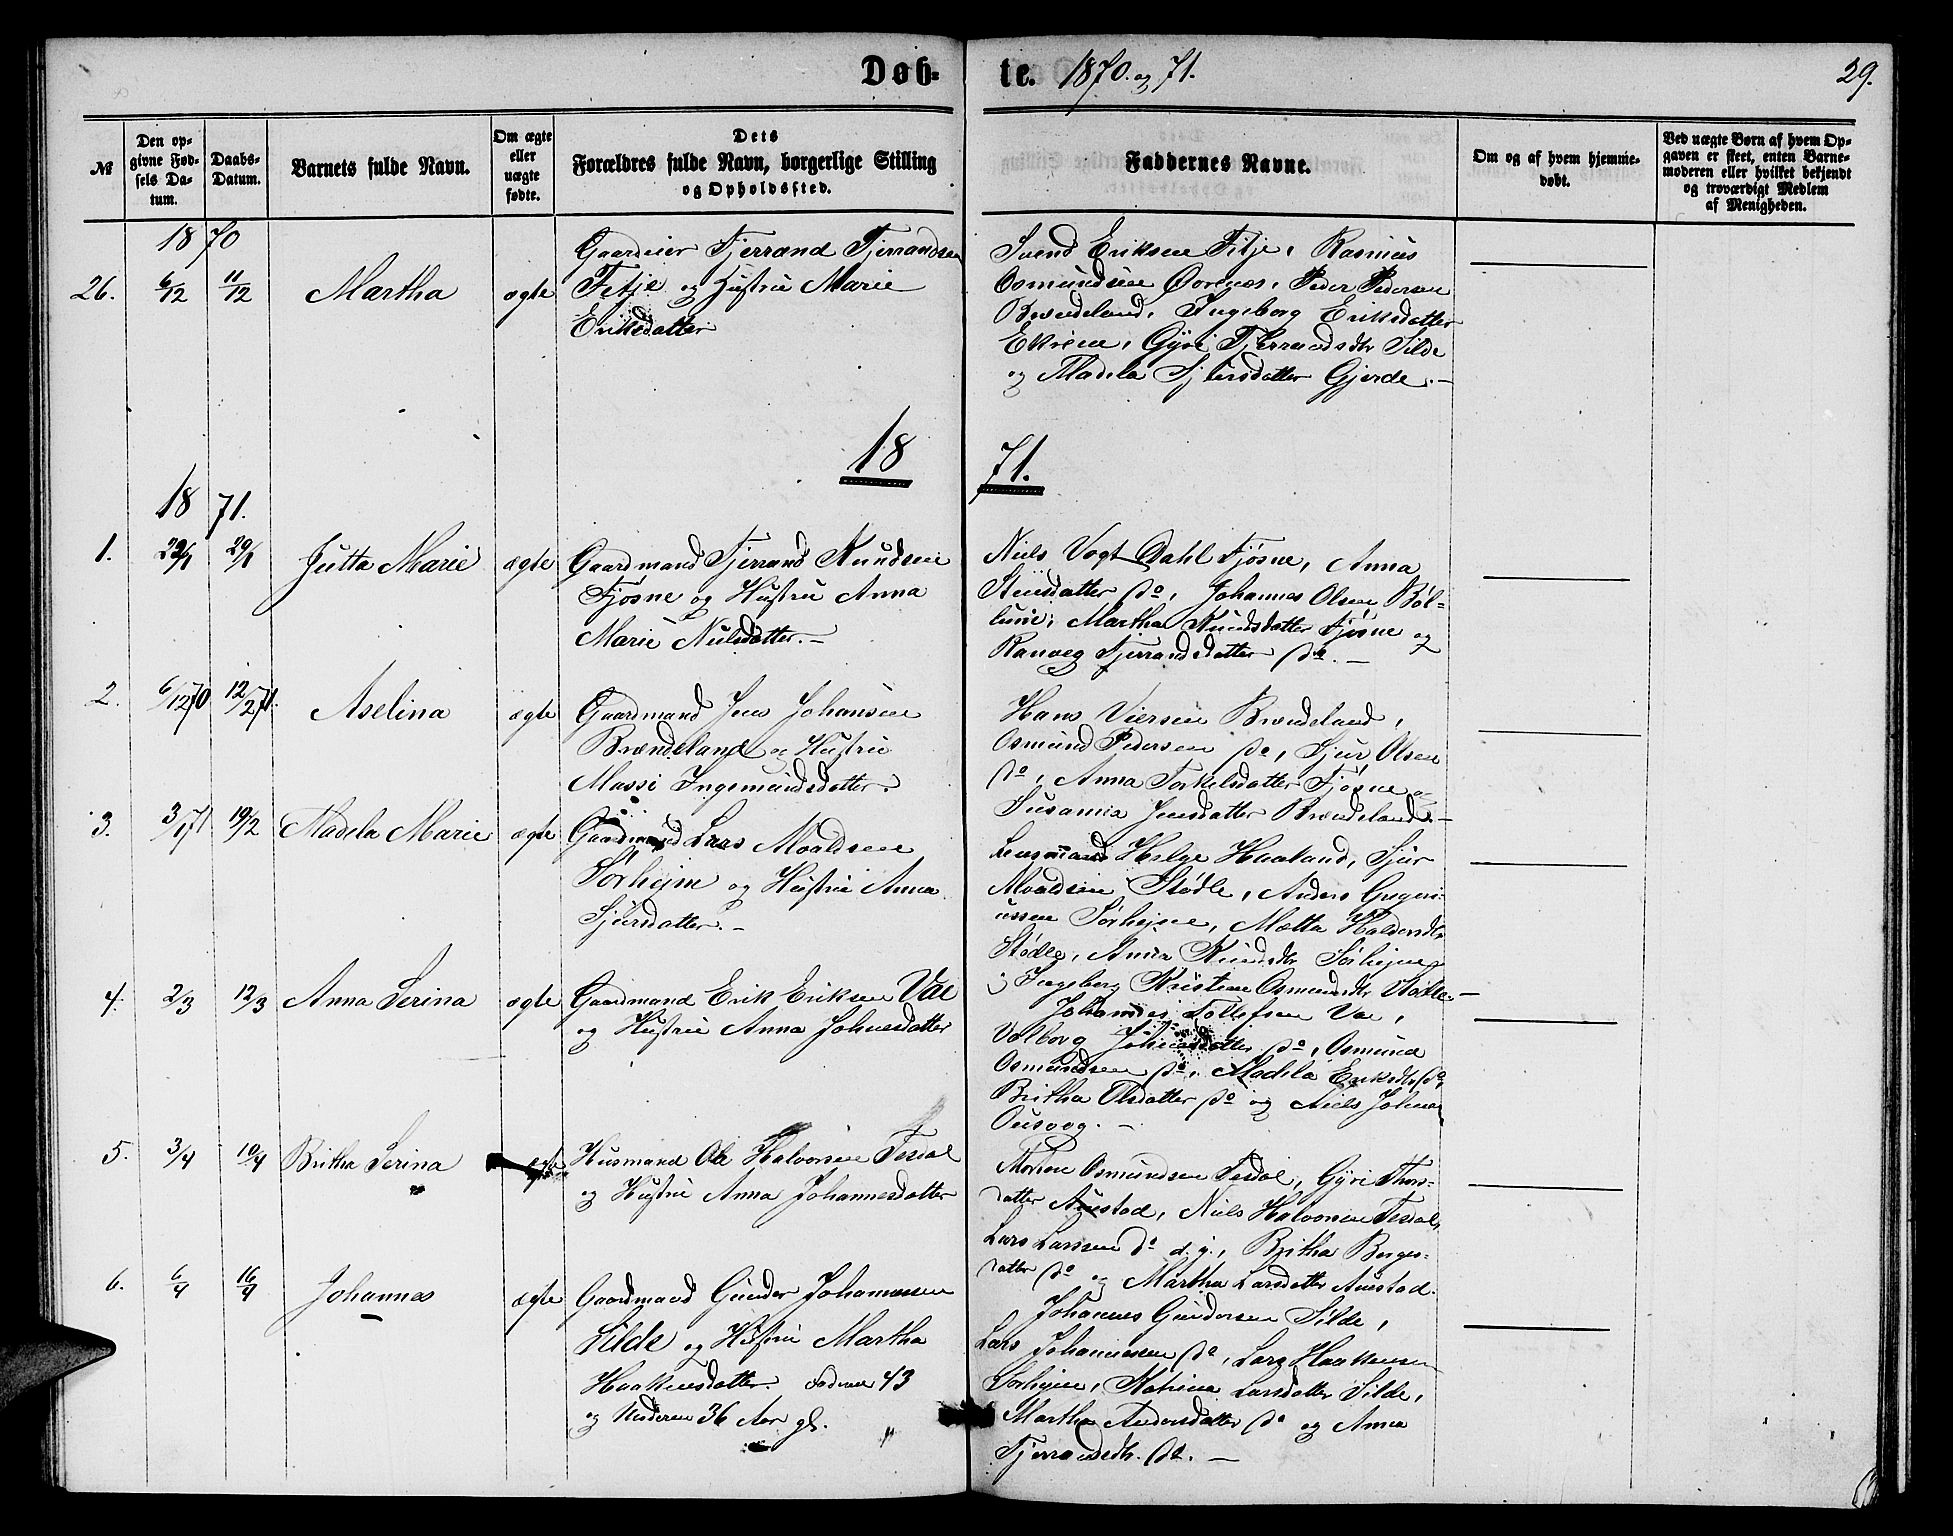 Døb-
te. 1870. og 71.
29.
№
Den op-
givne Fød-
sels Da-
tum.
Daabs-
Datum.
Barnets fulde Navn.
Om ægte
eller
uægte
fødte.
Dets
Forældres fulde Navn, borgerlige Stilling
og Opholdssted.
Faddernes Navne.
Om og af hvem hjemme-
døbt.
Ved uægte Børn af hvem Op-
gaven er skeet, enten Barne-
moderen eller hvilket bekjendt
og troværdigt Medlem
af Menigheden.
1870
26. 6/12 11/12 Martha ægte
Gaardeier Tjerrand Tjerrandsen
Fitje og Hustru Marie
Eriksdatter
Svend Eriksen Fitje, Rasmus
Osmundsen Øvrenes, Peder Pedersen
Brændeland, Ingeborg Eriksdatter
Ekrene, Gyri Tjerrandsdtr Silde
og Madela Sjursdatter Gjerde.
1871.
1871.
1. 22/1 29/1 Jutta Marie ægte
Gaardmand Tjerrand Knudsen
Fjøsne og Hustru Anna
Marie Nielsdatter.
Niels Vogt Dahl Fjøsne, Anna
do, Johannes Olsen
Martha Knudsdatter Fjøsne og
Ranveg Tjerrandsdatter do.
2. 6/12 70 12/2 71. Aselina ægte
Gaardmand Jens Johansen
Brændeland og Hustru
Massi Ingemundsdatter.
Hans Viersen Brændeland,
Osmund Pedersen do, Sjur Olsen
do, Anna Torkelsdatter Fjøsne og
Susanna Jensdatter Brændeland.
3. 3/1 71 19/2 Madela Marie ægte
Gaardmand Lars Moaldsen
Sørhejm og Hustru Anna
Sjursdatter.
Lensmand Helge Haaland, Sjur
Moaldsen Stødle, Anders Gregeri-
ussen Sørhejm, Mætta Haldorsdtr
Stødle, Anna Knudsdtr Sørhejm
og Ingeborg Kristine Osmundsdtr Stødle
4. 2/3 12/3 Anna Serina ægte
Gaardmand Erik Eriksen Vae
og Hustru Anna Johnesdatter
Johannes Tollefsen Vae,
Valborg do, Osmund
Osmundsen do, Madela Eriksdtr do,
Britha Olsdatter do og Niels Johnsen
5. 3/4 10/4 Britha Serina ægte
Husmand Ole Halvorsen Tesdal
og Hustru Anna Johannesdatter
Osmundsen Tesdal, Gyri Thors-
datter Austad, Niels Halvorsen Tesdal,
Lars Larsen do d. y., Britha Børges-
datter do og Martha Larsdatter Austad.
6. 6/4 16/4 Johannes ægte
Gaardmand Gunder Johannessen
Silde og Hustru Martha
Haakensdatter. Faderen 43
og Moderen 36 Aar gl.
Johannes Gundersen Silde,
Lars Johannessen do, Lars Haakensen
Sørhejm, Katrine Larsdatter Silde,
Martha Andersdatter do og Anna
Tjerrandsdtr. do.